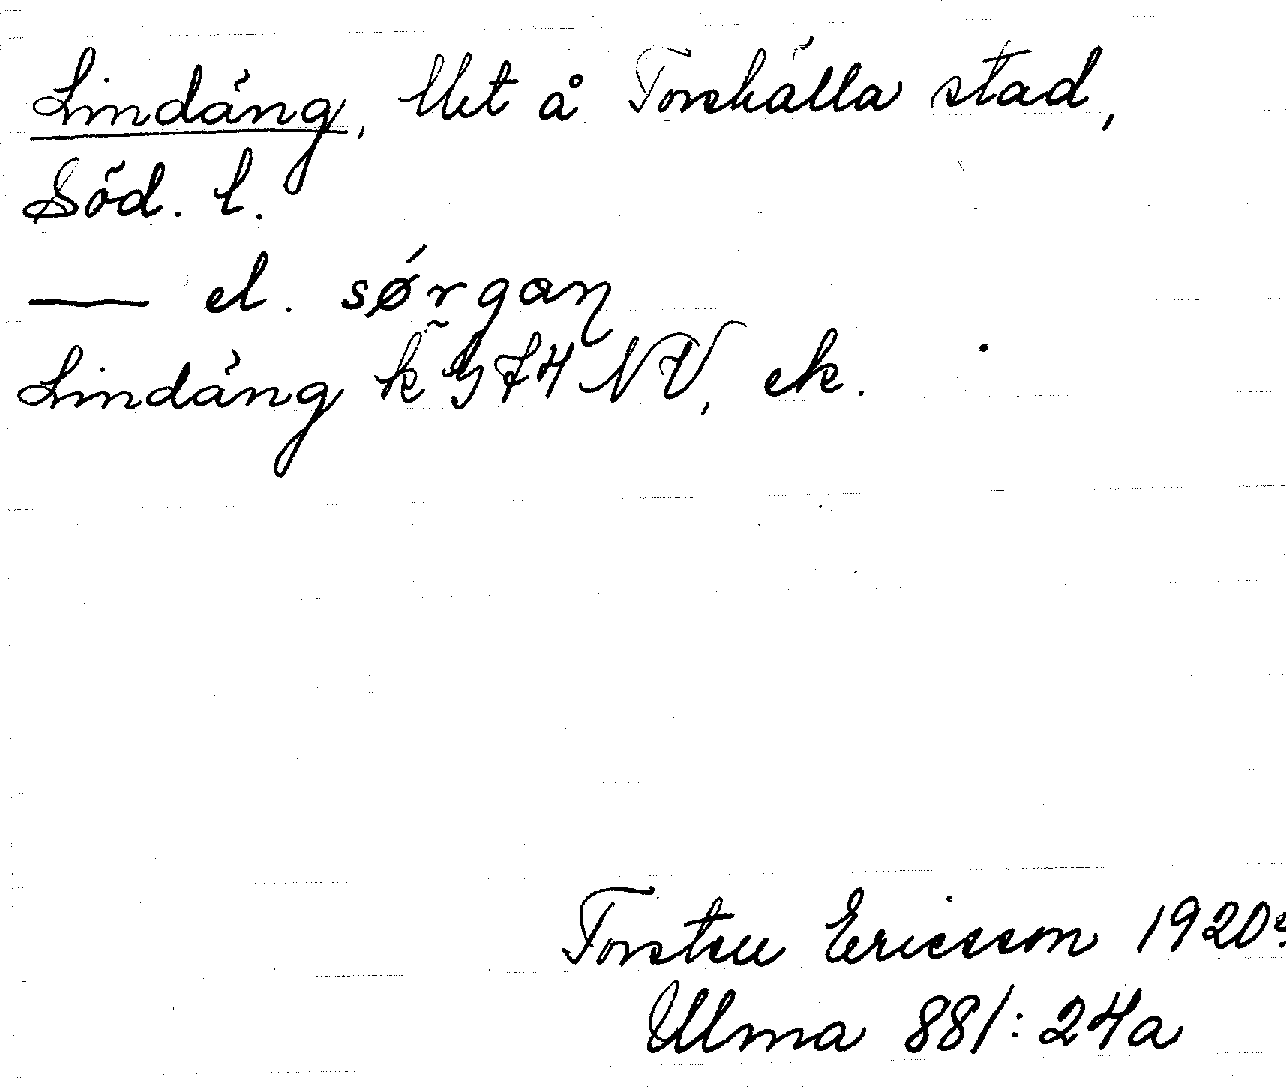 Lindäng, Utet å Torshälla stad,
Söd. l.
— el. sørgaŋ
Lindäng NV, ek.
Torsten Ericsson 1920
Ulma 881:24a